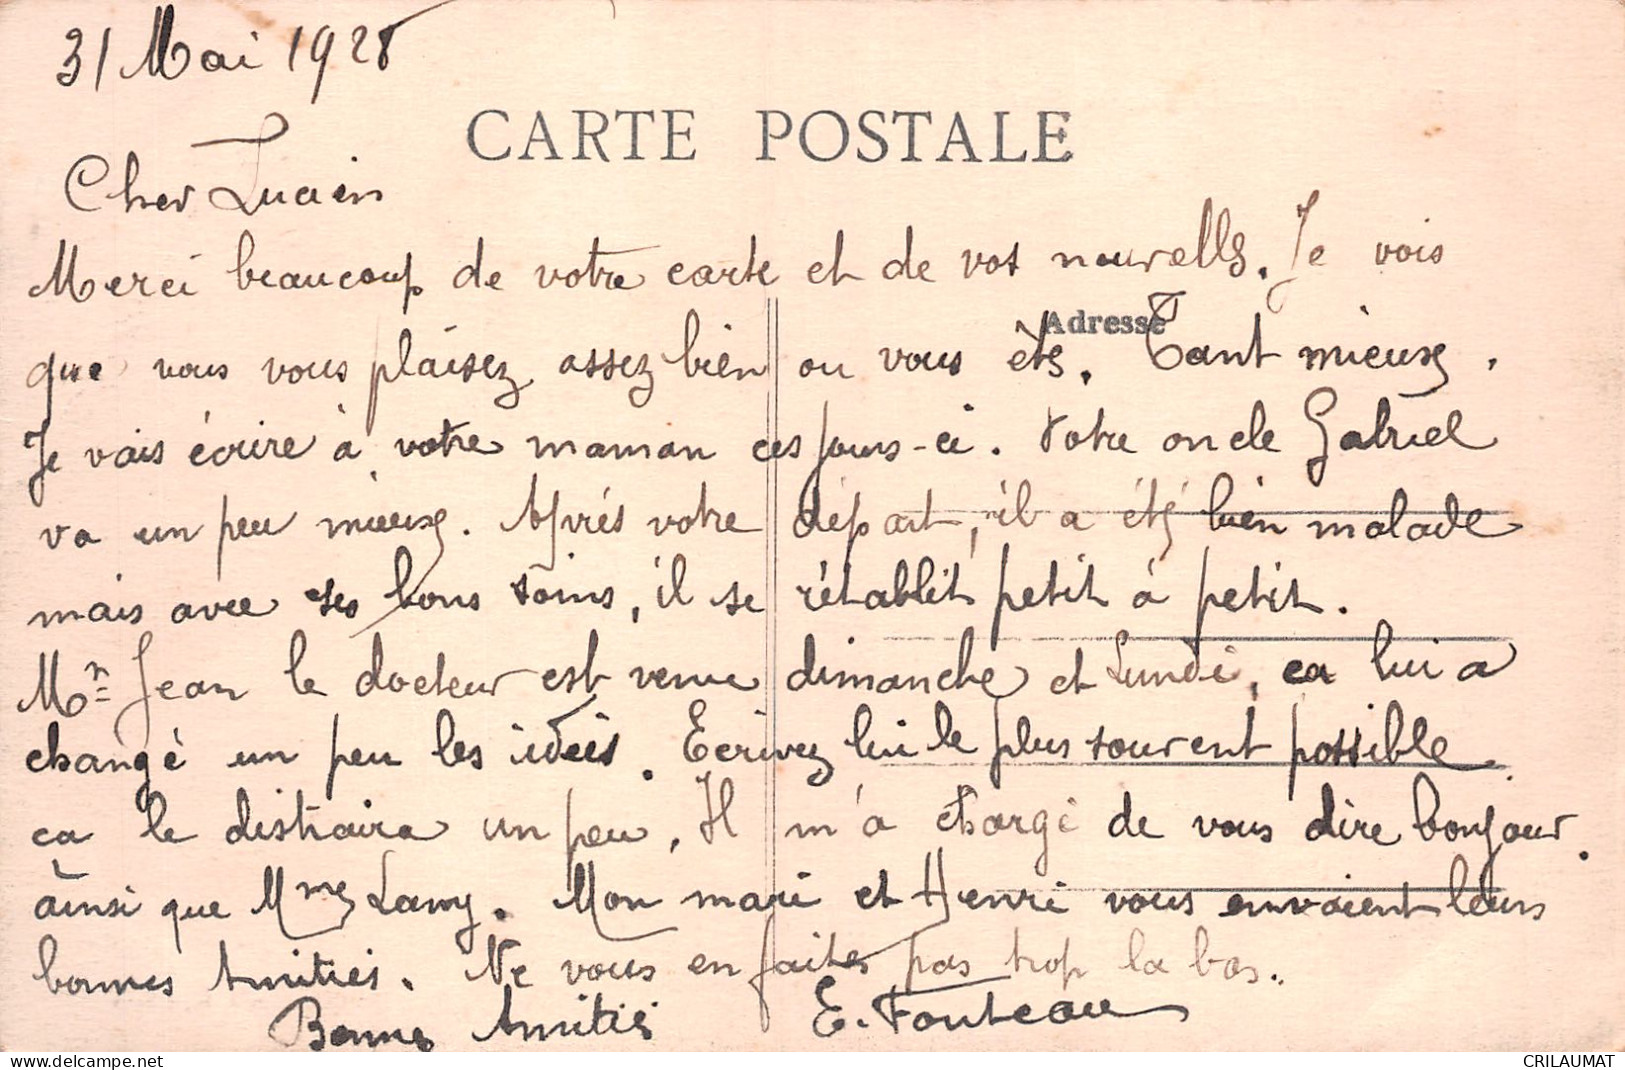 31 Mai 1928
CARTE POSTALE
Cher Lucien
Merci beaucoup de votre carte et de vos nouvelles. Je vois
Adresse
que vous vous plaisez assez bien ou vous êts. Tant mieux.
Je vais écrire à votre maman ces jours-ci. Votre oncle Gabriel
va un peu mieux. Après votre départ, il a été bien malade
mais avec ses bons soins, il se rétablit petit à petit.
Mr Jean le docteur est venu dimanche et Lundi, ca lui a
changé un peu les idées. Ecrivez lui le plus souvent possible
ca le distraira un peu. Il m'a chargé de vous dire bonjour.
ainsi que Mme Lamy. Mon mari et Henri vous envoient leurs
bonnes Amitiés. Ne vous en faites pas trop la bas.
Bonnes Amitiés E. Fonteau
CRILAUMAT